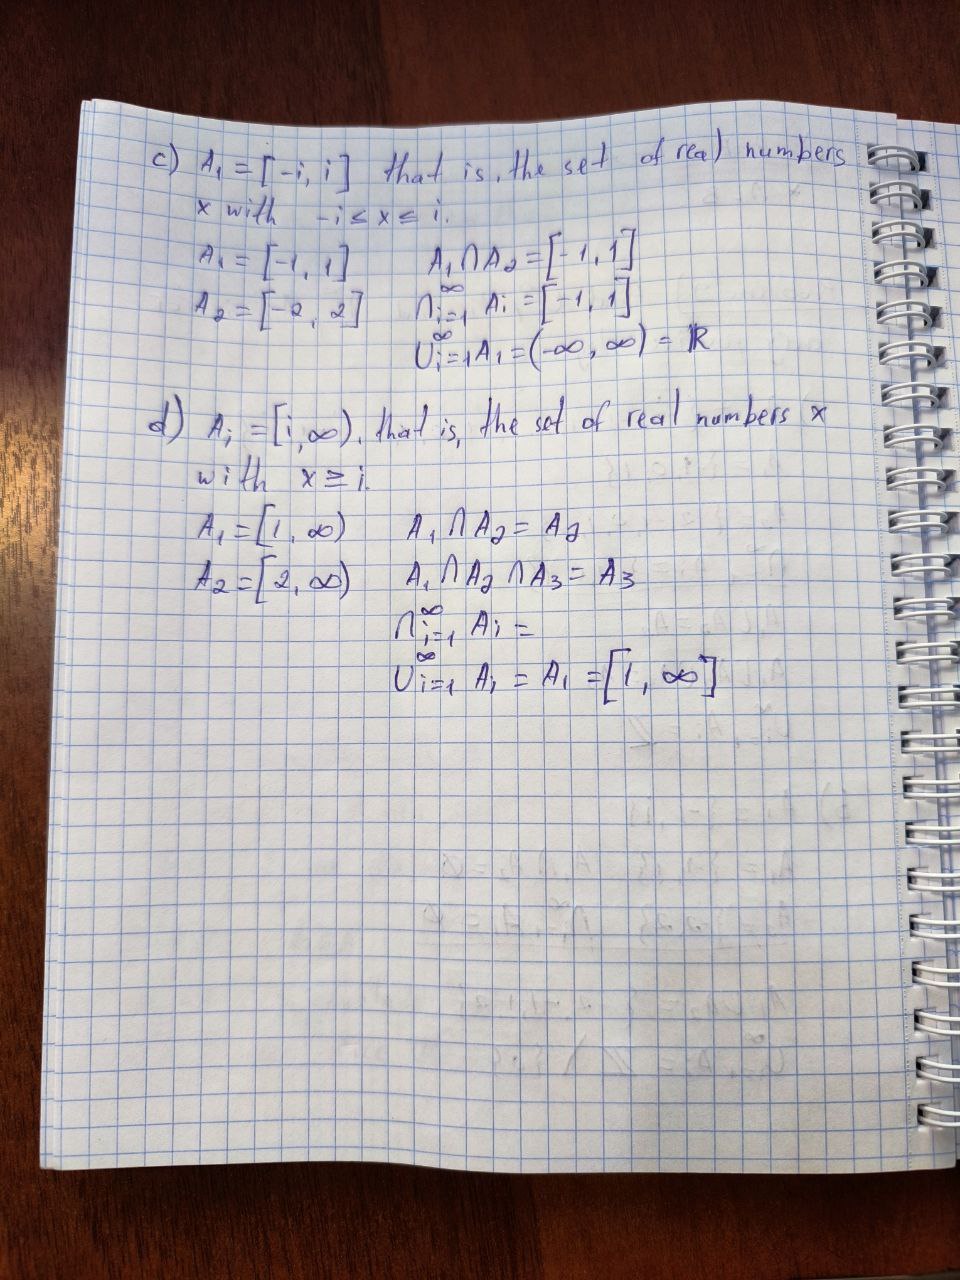 c) A₁ = [-i, i] that is, the set of real numbers
x with -i ≤ x ≤ i.
A₁ = [-1, 1] A₁ ∩ A₂ = [-1, 1]
A₂ = [-2, 2] ∩ᵢ₌₁^∞ Aᵢ = [-1, 1]
∪ᵢ₌₁^∞ A₁ = (-∞, ∞) = ℝ
d) Aᵢ = [i, ∞), that is, the set of real numbers x
with x ≥ i.
A₁ = [1, ∞) A₁ ∩ A₂ = A₂
A₂ = [2, ∞) A₁ ∩ A₂ ∩ A₃ = A₃
∩ᵢ₌₁^∞ Aᵢ =
∪ᵢ₌₁^∞ Aᵢ = A₁ = [1, ∞]